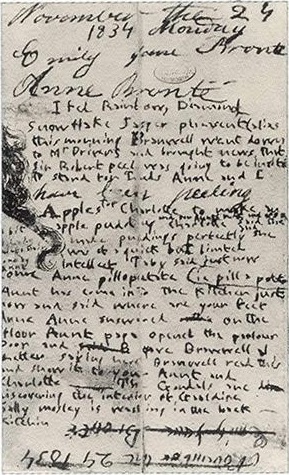 November the 24
1834 Monday
Emily Jane Brontë
Anne Brontë
I fed Rainbow, Diamond
Snowflake Jasper pheasent (alias
this morning Branwell went down
to Mr Drivers and brought news that
Sir Robert peel was going to be invited
to stand for Leeds Anne and I
have been peeling
Apples for Charlotte to make
apple pudding Charlotte said she
made puddings perfectly she
was of a quick but limted
Intellect Taby said just now
come Anne pillopatate (ie pill a potato
Aunt has come into the Kitchen just
now and said where are your feet
Anne Anne answered on the
floor Aunt papa opened the parlour
Door and gave Branwell a
Letter saying here Branwell read this
and show it to your Aunt and
Charlotte The Gondals are
discovering the interior of Gaaldine
Sally mosley is washing in the back
Kitchin
November the 24 1834